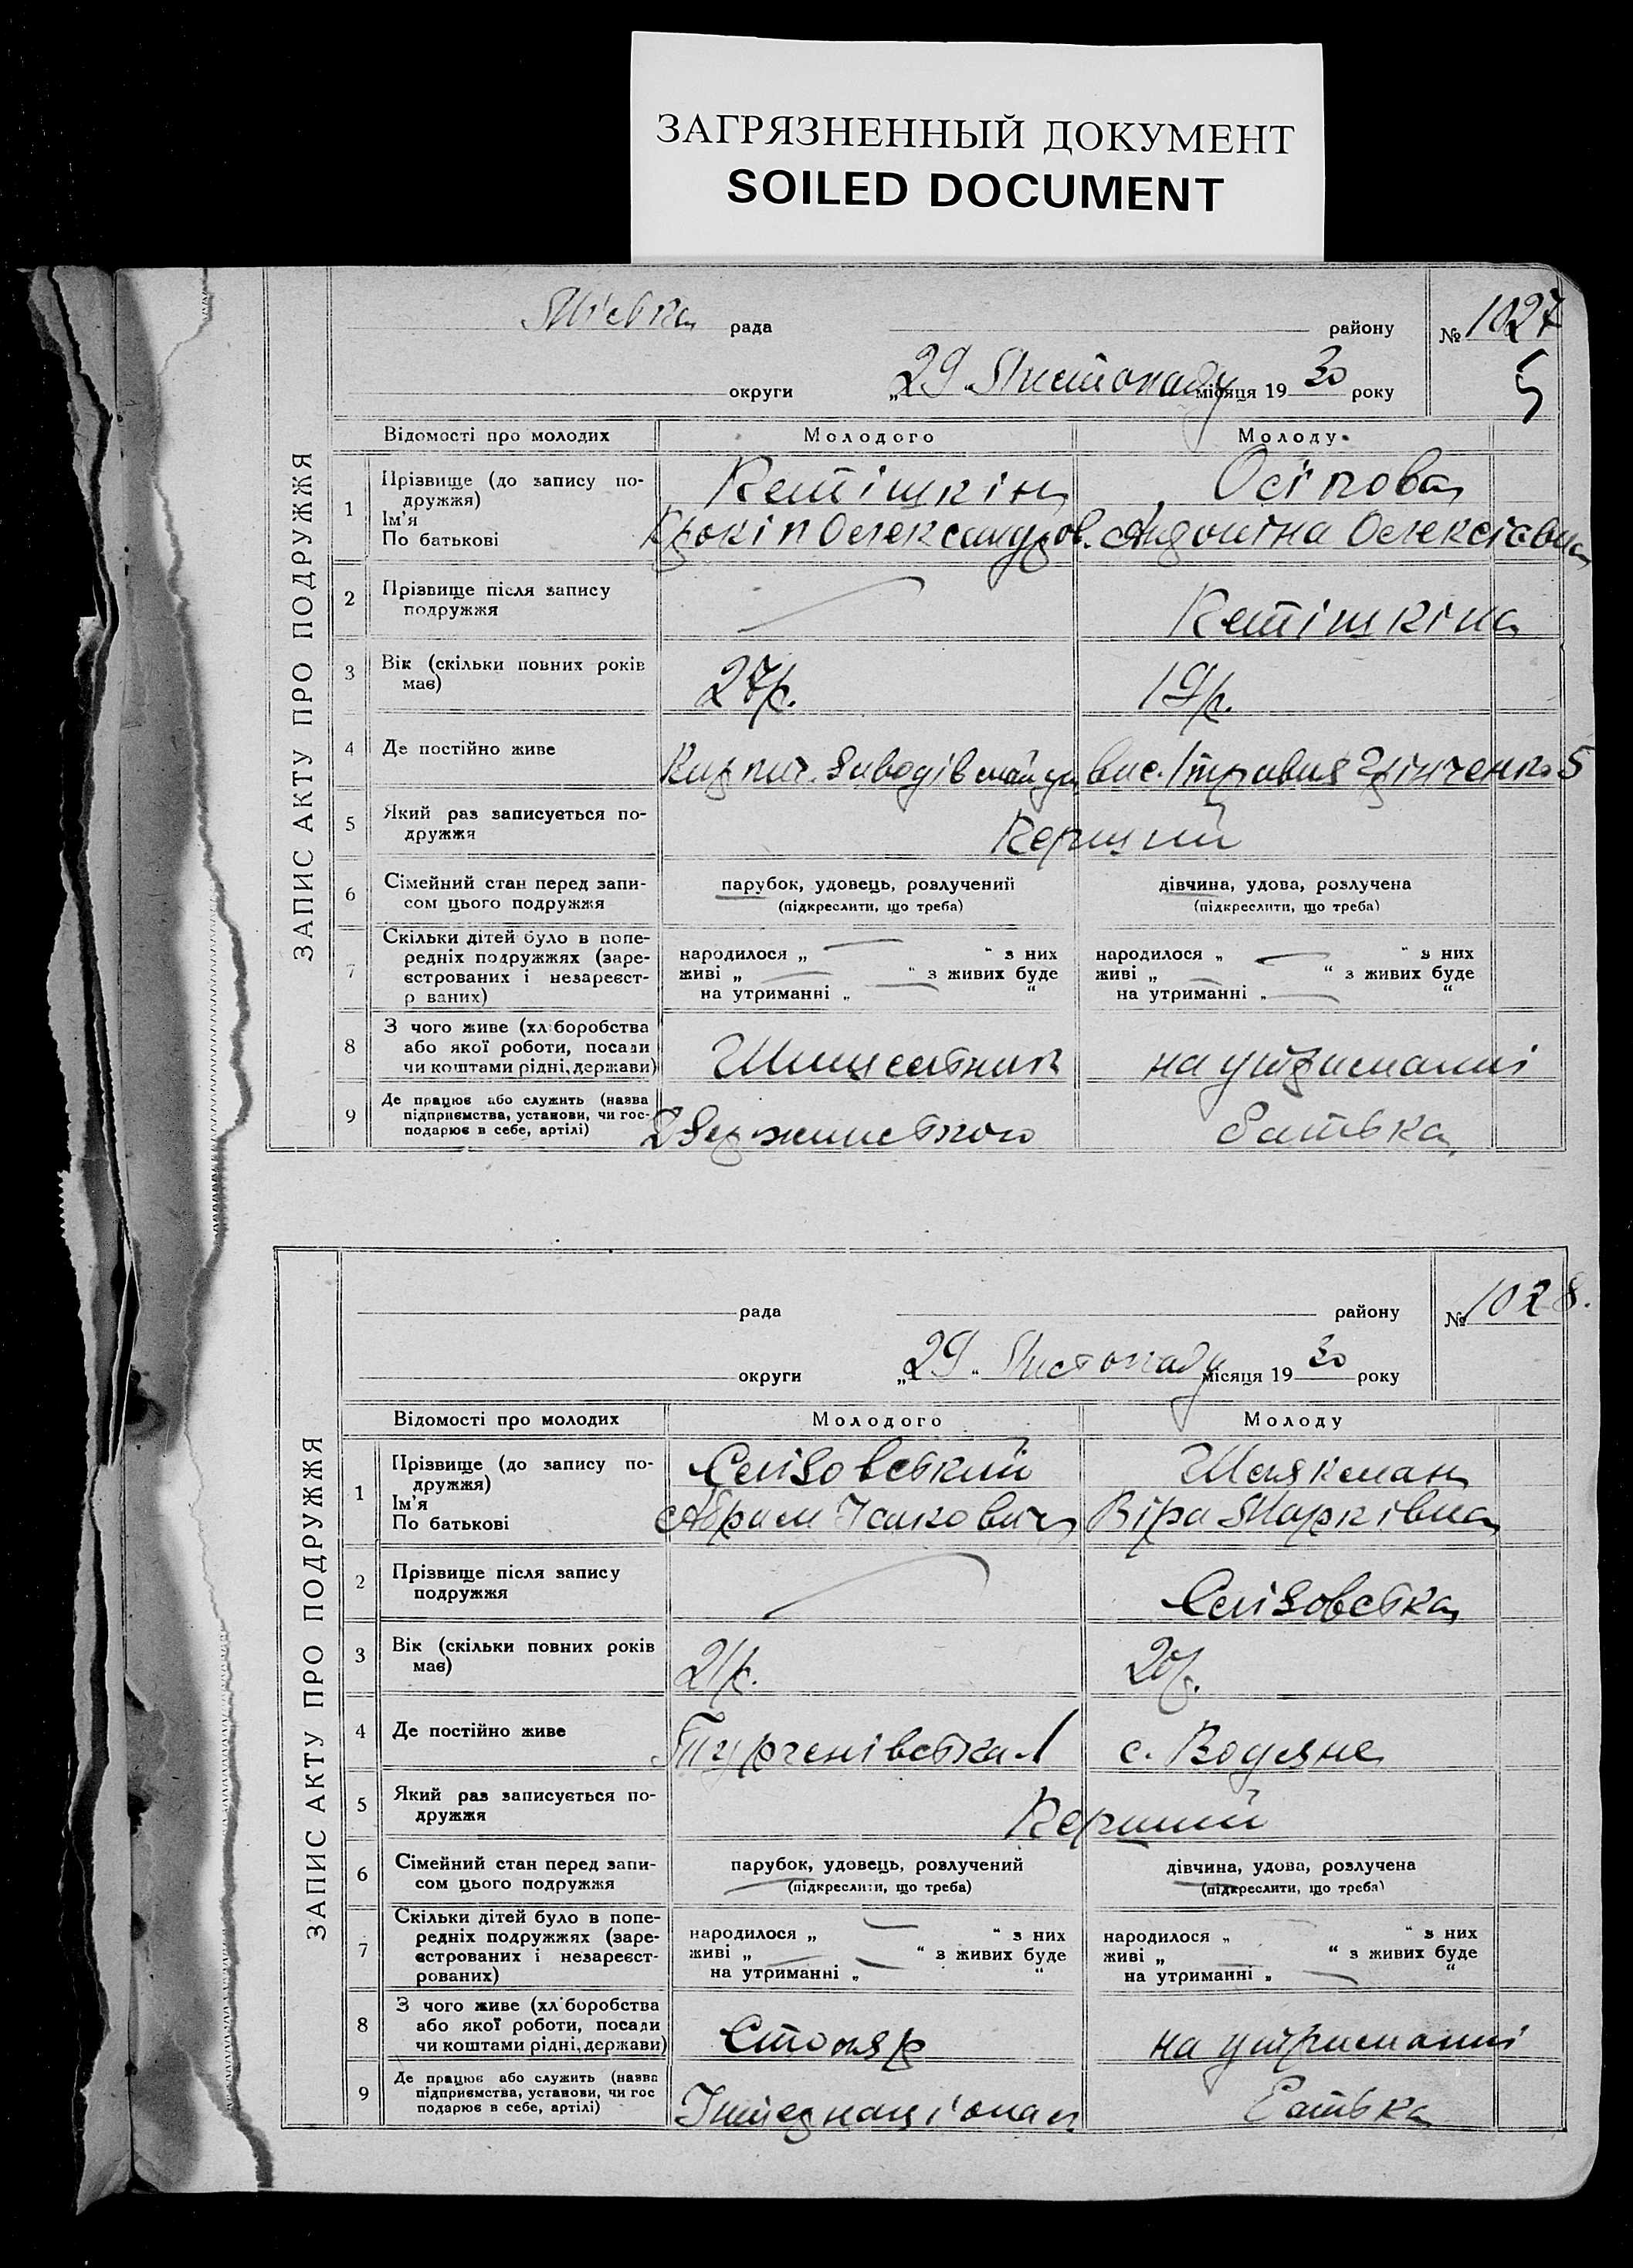 ЗАГРЯЗНЕННЫЙ ДОКУМЕНТ
SOILED DOCUMENT
ЗАПИС АКТУ ПРО ПОДРУЖЖЯ
рада району № 1027
5
округи „29“ Листопаду місяця 19 30 року
Відомості про молодих Молодого Молоду
1 Прізвище (до запису подружжя) Кетішкін Осіпова
Ім'я
По батькові Олександров. Андоніна Олексієвна
2 Прізвище після запису Кетішкіна
подружжя
3 Вік (скільки повних років 27 р. 19 р.
має)
4 Де постійно живе вис. 1 травня Грінченко 5
5 Який раз записується по-
дружжя Перший
6 Сімейний стан перед запи- парубок, удовець, розлучений дівчина, удова, розлучена
сом цього подружжя (підкреслити, що треба) (підкреслити, що треба)
7 Скільки дітей було в попе-
редніх подружжях (заре- народилося „ “ з них народилося „ “ з них
єстрованих і незареєст- живі „ “ з живих буде живі „ “ з живих буде
р ваних) на утриманні „ “ на утриманні „ “
8 З чого живе (хліборобства
або якої роботи, посади на утриманні
чи коштами рідні, держави)
9 Де працює або служить (назва
підприємства, установи, чи гос- Батька
подарює в себе, артілі)
ЗАПИС АКТУ ПРО ПОДРУЖЖЯ
рада району № 1028.
округи „29“ Листопаду місяця 19 30 року
Відомості про молодих Молодого Молоду
1 Прізвище (до запису по- Слізовський Шлякман
дружжя)
Ім'я Абрам Ісакович Віра Марківна
По батькові
2 Прізвище після запису Слізовська
подружжя
3 Вік (скільки повних років 21 р. 20 р.
має)
4 Де постійно живе Тургенівська 1 с. Водяне
5 Який раз записується по-
дружжя Перший
6 Сімейний стан перед запи- парубок, удовець, розлучений дівчина, удова, розлучена
сом цього подружжя (підкреслити, що треба) (підкреслити, що треба)
7 Скільки дітей було в попе-
редніх подружжях (заре- народилося „ “ з них народилося „ “ з них
єстрованих і незареєст- живі „ “ з живих буде живі „ “ з живих буде
рованих) на утриманні „ “ на утриманні „ “
8 З чого живе (хліборобства
або якої роботи, посади Столяр на утриманні
чи коштами рідні, держави)
9 Де працює або служить (назва
підприємства, установи, чи гос Інтернаціонал Батька
подарює в себе, артілі)